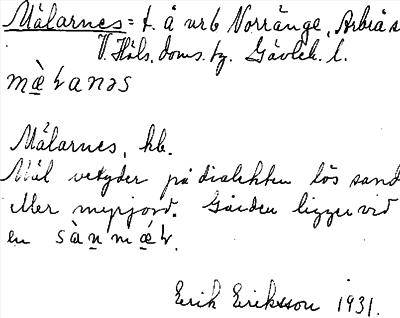 Målarnes = t. å urb Norränge, Arbrå s
V. Häls. doms. tg. Gävleb. l.
mæ̀ɽanəs
Målarnes, hb.
Mål betyder på dialekten lös sand
eller mopjord. Gården ligger vid
en sànmǽɽ.
Erik Eriksson 1931.